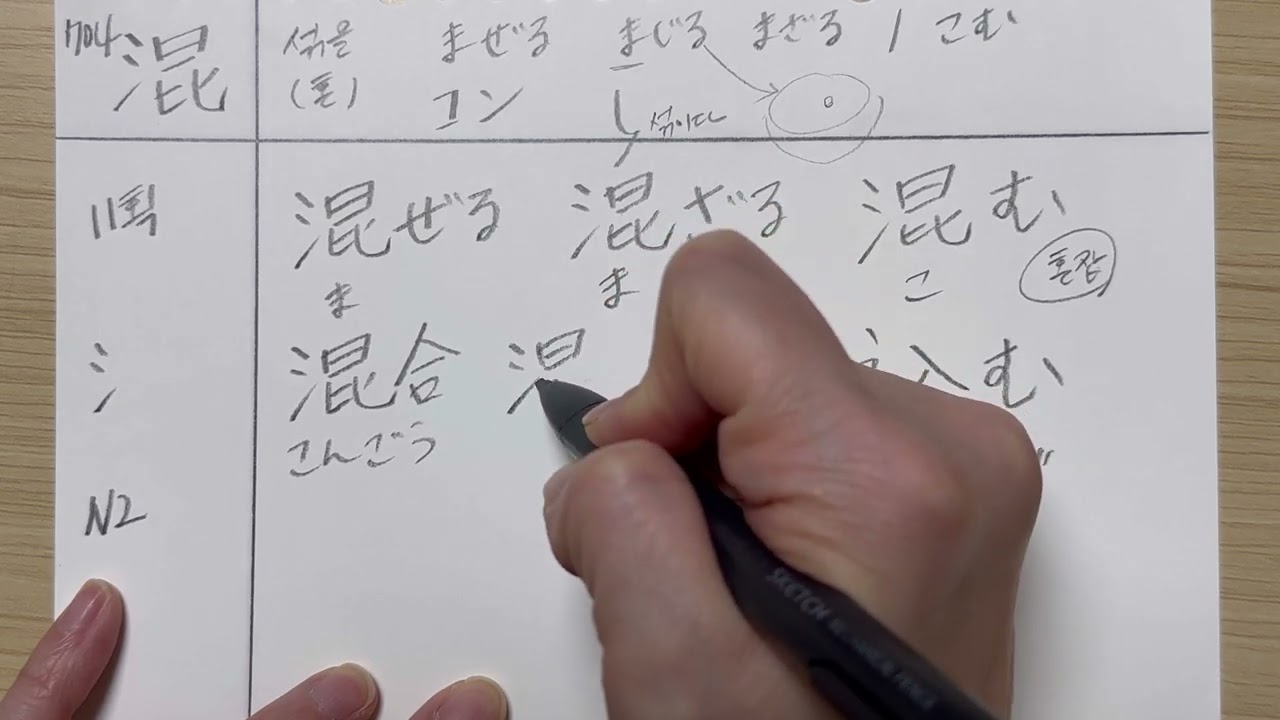 704 混 섞을 まぜる まじる まざる / こむ
(혼) コン し 섞이다
11획 混ぜる 混ざる 混む
ま ま こ 혼잡
氵 混合 込む
こんごう
N2
SKETCH